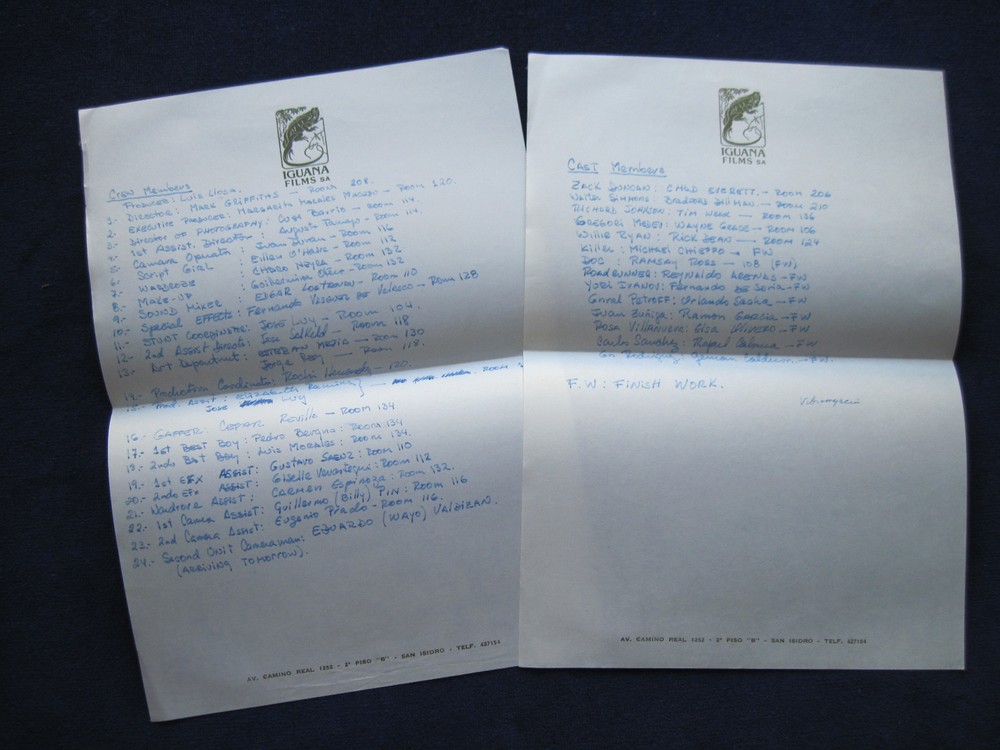 IGUANA
FILMS SA
Crew Members
Producer: Luis Llosa.
1- Director: Mark Griffiths — Room 208.
2- Executive Producer: Margarita Morales Macedo — Room 120.
3- Director of Photography: Cusi Barrio — Room 114.
4- 1st Assist. Director: Augusto Tamayo — Room 114.
5- Camera Operator: Juan Duran — Room 116
6- Script Girl: Eileen O'Hara — Room 112
7- Wardrobe: Charo — Room 132
8- Make-up: Guillermina — Room 132
9- Sound Mixer: Edgar — Room 110
10- Special Effects: Fernando Vasquez de Velasco — Room 128
11- Stunt Coordinator: Jose Luy — Room 104.
12- 2nd Assist Director: — Room 118
13- Art Department: Esteban Mejia — Room 130
Jorge — Room 118.
14- Production Coordinator: Rochi — 120.
15- Prod. Assist: Elizabeth — Room
Jose Luy
16.- Gaffer: Cesar — Room 134
17.- 1st Best Boy: Pedro — Room 134
18.- 2ndo Best Boy: Luis Morales: Room 134.
19.- 1st EFX Assist: Gustavo Saenz: Room 110
20.- 2ndo EFX Assist: Giselle: Room 112
21.- Wardrove Assist: Carmen Espinoza: Room 132.
22.- 1st Camera Assist: Guillermo (Billy) Pin: Room 116
23.- 2nd Camera Assist: Eugenio Prado - Room 116.
24.- Second Unit Cameraman: Eduardo (Wayo) Valdizan.
(Arriving Tomorrow).
AV. CAMINO REAL 1252 - 2° PISO "B" - SAN ISIDRO - TELF. 427184
IGUANA
FILMS SA
Cast Members
Zack Duncan: Chad Everett. - Room 206
Walter Simmons: Bradford Dillman — Room 210
Richard Johnson: Tim — Room 136
Gregori: Wayne Grace - Room 106
Willie Ryan: Rick Dean — Room 124
Killer: Michael Chieffo → FW
Doc: Ramsay Ross → 108 (FW)
Roadrunner: Reynaldo Arenas - FW
Yuri Ivanov: Fernando de Soria - FW
Gnral Petroff: Orlando Sacha - FW
Juan Zuñiga: Ramon Garcia - FW
Rosa Villanueva: Elsa Olivero - FW
Carlos Sanchez: Rafael - FW
Rodriguez: German - FW.
F.W: FINISH WORK.
AV. CAMINO REAL 1252 - 2° PISO "B" - SAN ISIDRO - TELF. 427184